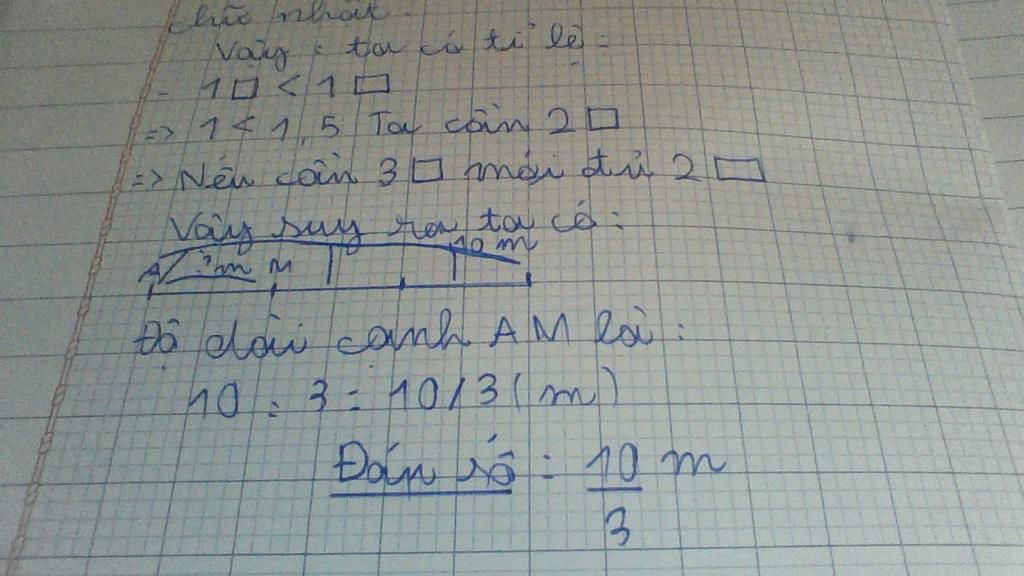 chữ nhật.
Vậy: ta có tỉ lệ:
- 1□ < 1▭
=> 1 < 1,5 Ta cần 2□
=> Nếu cần 3□ mới đủ 2▭
Vậy suy ra ta có:
10 m
A ? m M
Độ dài cạnh AM là:
10 : 3 = 10/3 (m)
Đáp số: 10/3 m